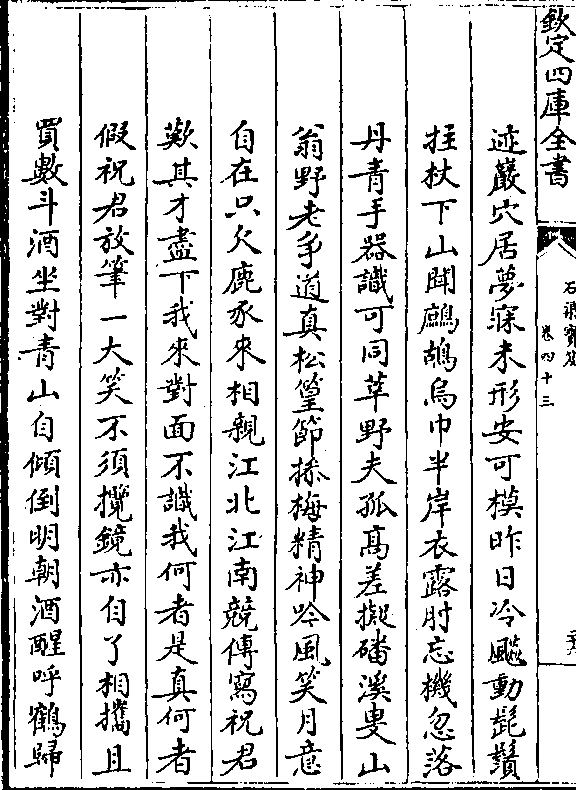 欽定四庫全書
石渠寶笈
卷四十三
迹巖穴居夢寐未形安可模昨日冷飈動髭鬚
拄杖下山聞鷓鴣烏巾半岸衣露肘忘機忽落
丹青手器識可同莘野夫孤高差擬磻溪叟山
翁野老爭道真松篁節操梅精神吟風笑月意
自在只欠鹿豕來相親江北江南競傳寫祝君
歎其才盡下我來對面不識我何者是真何者
假祝君放筆一大笑不須攬鏡亦自了相攜且
買數斗酒坐對青山自傾倒明朝酒醒呼鶴歸